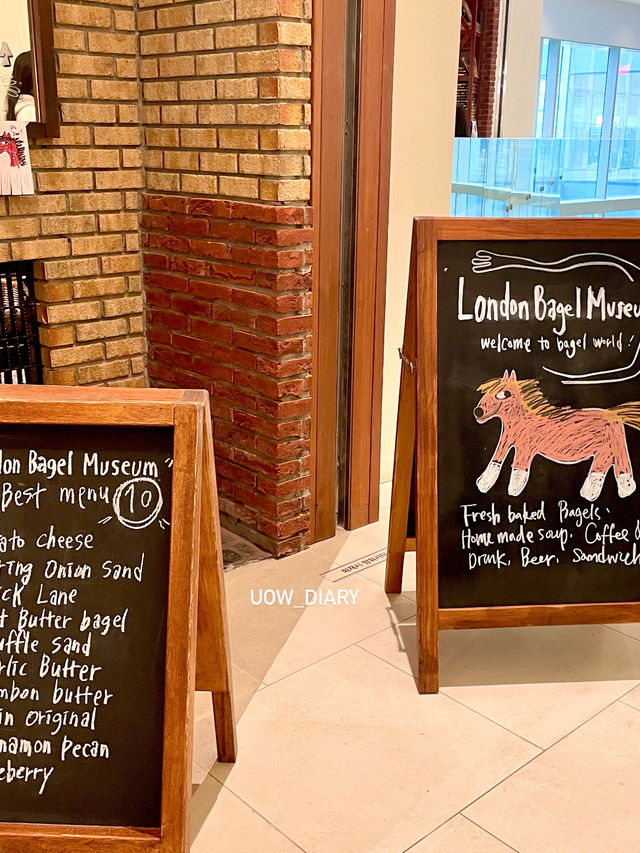 don Bagel Museum
Best menu 10
ato cheese
ring Onion Sand
ick Lane
t Butter bagel
uffle sand
rlic Butter
mbon butter
in Original
namon pecan
eberry
London Bagel Museu
welcome to bagel world!
Fresh baked Bagels.
Home made soup. Coffee
Drink, Beer, Sandwich
UOW_DIARY